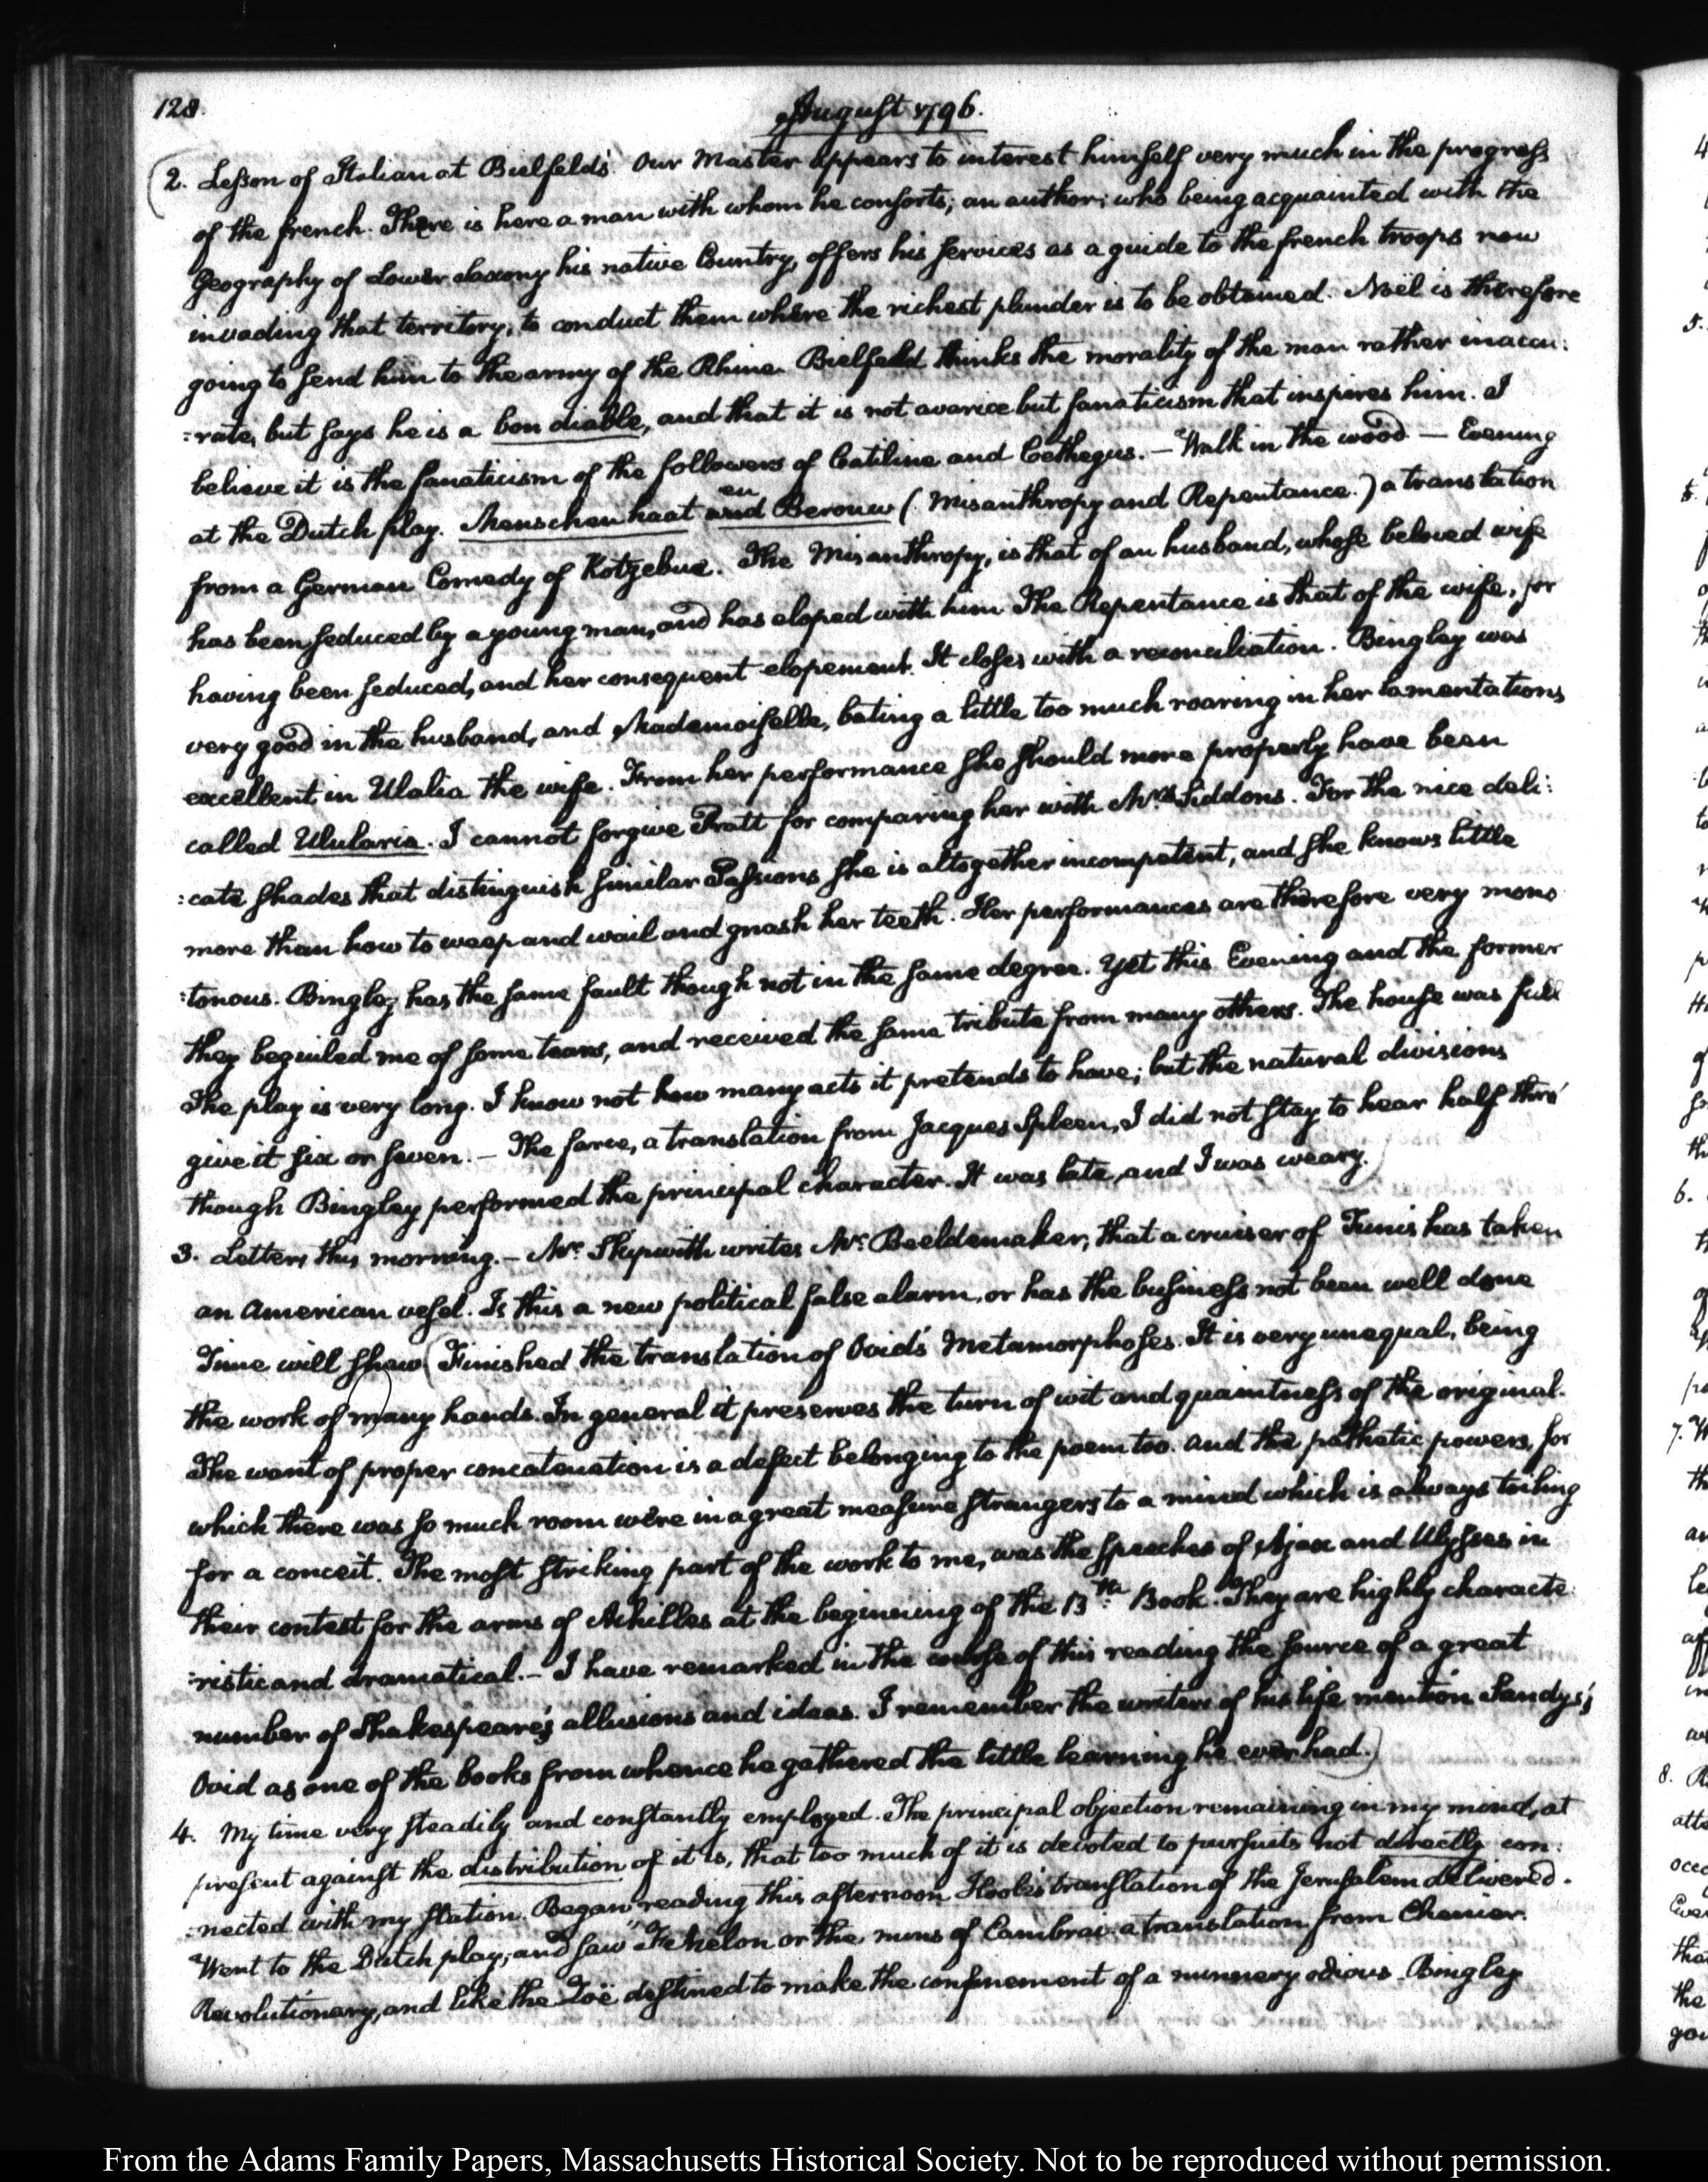 128.
August 1796.
2. Lesson of Italian at Bielfeld's. Our Master appears to interest himself very much in the progress
of the french. There is here a man with whom he consorts; an author; who being acquainted with the
Geography of Lower Saxony his native Country, offers his services as a guide to the french troops now
invading that territory, to conduct them where the richest plunder is to be obtained. Noël is therefore
going to send him to the army of the Rhine. Bielfeld thinks the morality of the man rather inaccu:
:rate, but says he is a bon diable, and that it is not avarice but fanaticism that inspires him. I
believe it is the fanaticism of the followers of Catiline and Cethegus. — Walk in the wood — Evening
at the Dutch play. Menschenhaat en and Berouw (Misanthropy and Repentance.) a translation
from a German Comedy of Kotzebue. The Misanthropy, is that of an husband, whose beloved wife
has been seduced by a young man, and has eloped with him The Repentance is that of the wife, for
having been seduced, and her consequent elopement. It closes with a reconciliation. Bingley was
very good in the husband, and Mademoiselle, bating a little too much roaring in her lamentations
excellent in Ulalia the wife. From her performance she should more properly have been
called Ulularia. I cannot forgive Pratt for comparing her with Mrs. Siddons. For the nice deli:
:cate shades that distinguish similar Passions she is altogether incompetent, and she knows little
more than how to weep and wail and gnash her teeth. Her performances are therefore very mono
:tonous. Bingley has the same fault though not in the same degree. Yet this Evening and the former
they beguiled me of some tears, and received the same tribute from many others. The house was full
The play is very long. I know not how many acts it pretends to have; but the natural divisions
give it six or seven. — The farce, a translation from Jacques Spleen, I did not stay to hear half thro'
though Bingley performed the principal character. It was late, and I was weary.)
3. Letters this morning. — Mr. Skipwith writes Mr. Beeldemaker, that a cruiser of Tunis has taken
an American vessel. Is this a new political false alarm, or has the business not been well done
Time will shew. (Finished the translation of Ovid's Metamorphoses. It is very unequal, being
the work of many hands. In general it preserves the turn of wit and quaintness of the original.
The want of proper concatenation is a defect belonging to the poem too. and the pathetic powers, for
which there was so much room were in a great measure strangers to a mind which is always toiling
for a conceit. The most striking part of the work to me, was the speeches of Ajax and Ulysses in
their contest for the arms of Achilles at the beginning of the 13th. Book. They are highly characte
:ristic and dramatical. — I have remarked in the course of this reading the source of a great
number of Shakespeare's allusions and ideas. I remember the writers of his life mention Sandys's
Ovid as one of the books from whence he gathered the little learning he ever had.)
4. My time very steadily and constantly employed. The principal objection remaining in my mind, at
present against the distribution of it is, that too much of it is devoted to pursuits not directly con:
:nected with my station. Began reading this afternoon Hoole's translation of the Jerusalem delivered.
Went to the Dutch play, and saw "Fenelon or the nuns of Cambrai. a translation from Chenier.
Revolutionary, and like the Zoë destined to make the confinement of a nunnery odious. Bingley
From the Adams Family Papers, Massachusetts Historical Society. Not to be reproduced without permission.